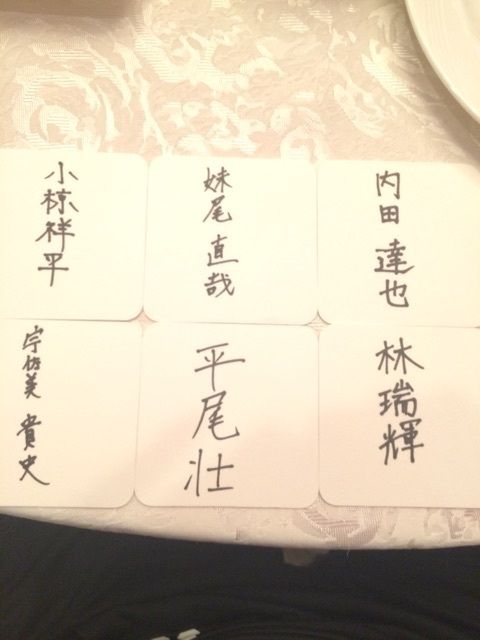 小椋祥平
妹尾 直哉
内田 達也
宇佐美 貴史
平尾 壮
林瑞輝